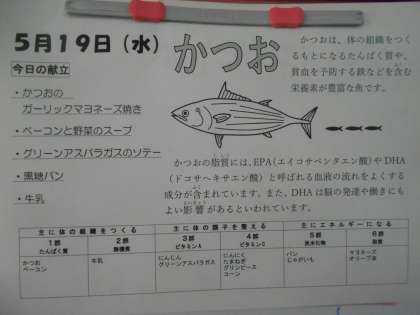 5月19日（水）
かつお
今日の献立
・かつおの
ガーリックマヨネーズ焼き
・ベーコンと野菜のスープ
・グリーンアスパラガスのソテー
・黒糖パン
・牛乳
かつおは、体の組織をつく
るもとになるたんぱく質や、
貧血を予防する鉄などを含む
栄養素が豊富な魚です。
かつおの脂質には、EPA（エイコサペンタエン酸）やDHA
（ドコサヘキサエン酸）と呼ばれる血液の流れをよくする
成分が含まれています。また、DHAは脳の発達や働きにも
よい影響があるといわれています。
主に体の組織をつくる 主に体の調子を整える 主にエネルギーになる
1群 2群 3群 4群 5群 6群
たんぱく質 無機質 ビタミンA ビタミンC 炭水化物 脂質
かつお 牛乳 にんじん にんにく パン マヨネーズ
ベーコン グリーンアスパラガス たまねぎ じゃがいも オリーブ油
グリンピース
コーン